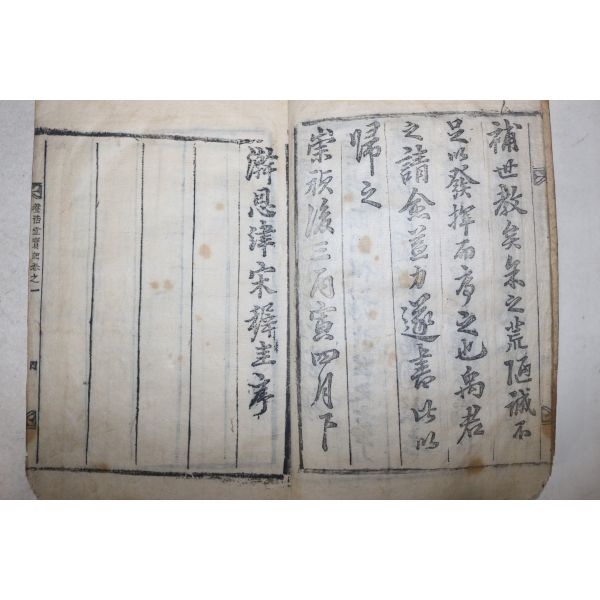 補世教矣年之荒陋誠不
足以發揮而序之也禹君
之請僉益力遂書此以
歸之
崇禎後三丙寅四月下
澣恩津宋穉圭序
實記卷之一
四